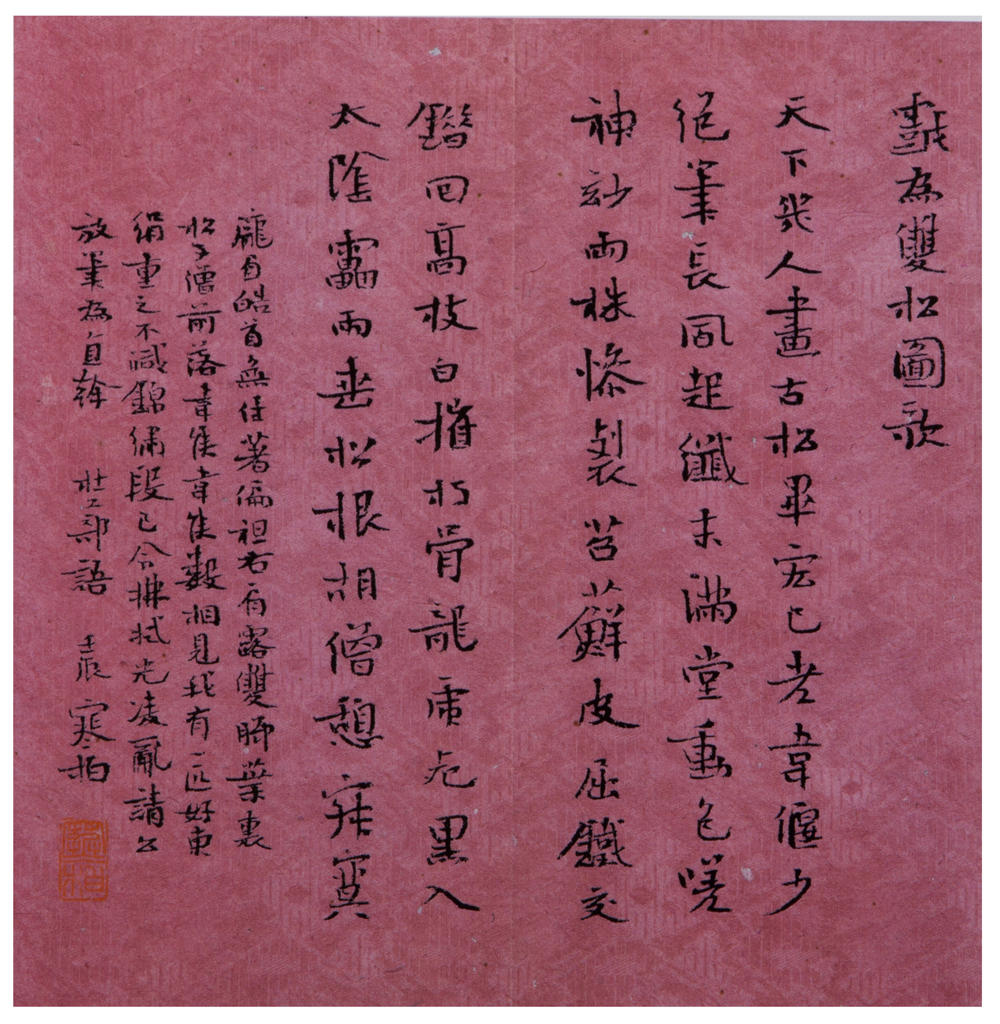 戲為雙松圖歌
天下幾人畫古松畢宏已老韋偃少
絕筆長風起纖末滿堂動色嗟
神玅兩株慘裂苔蘚皮屈鐵交
錯回高枝白摧朽骨龍虎死黑入
太陰靁雨垂松根胡僧憩寂寞
龐眉皓首無住著偏袒右肩露雙腳葉裏
松子僧前落韋侯韋侯數相見我有一匹好東
絹重之不減錦繡段已令拂拭光凌亂請公
放筆為直幹 杜工部語 壬辰 寒柏